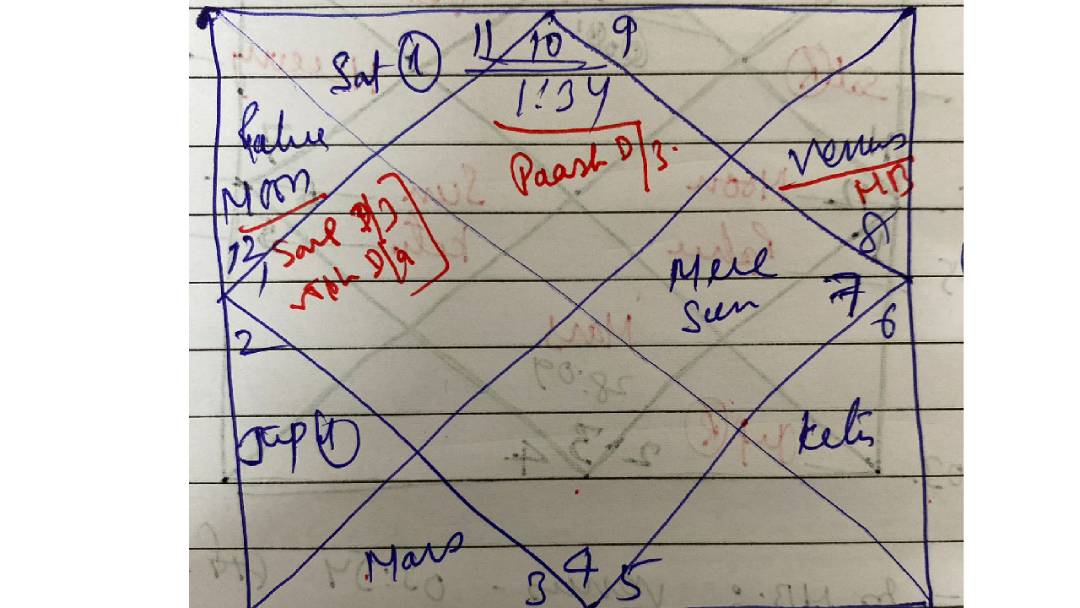 11 10 9
Sat (R)
1:34
Paash D/3.
Rahu
Moon
Venus
MB
12
1
Sarp D/3
8
Merc
Sun
7
2
6
Jup (R)
Ketu
Mars
3 4 5